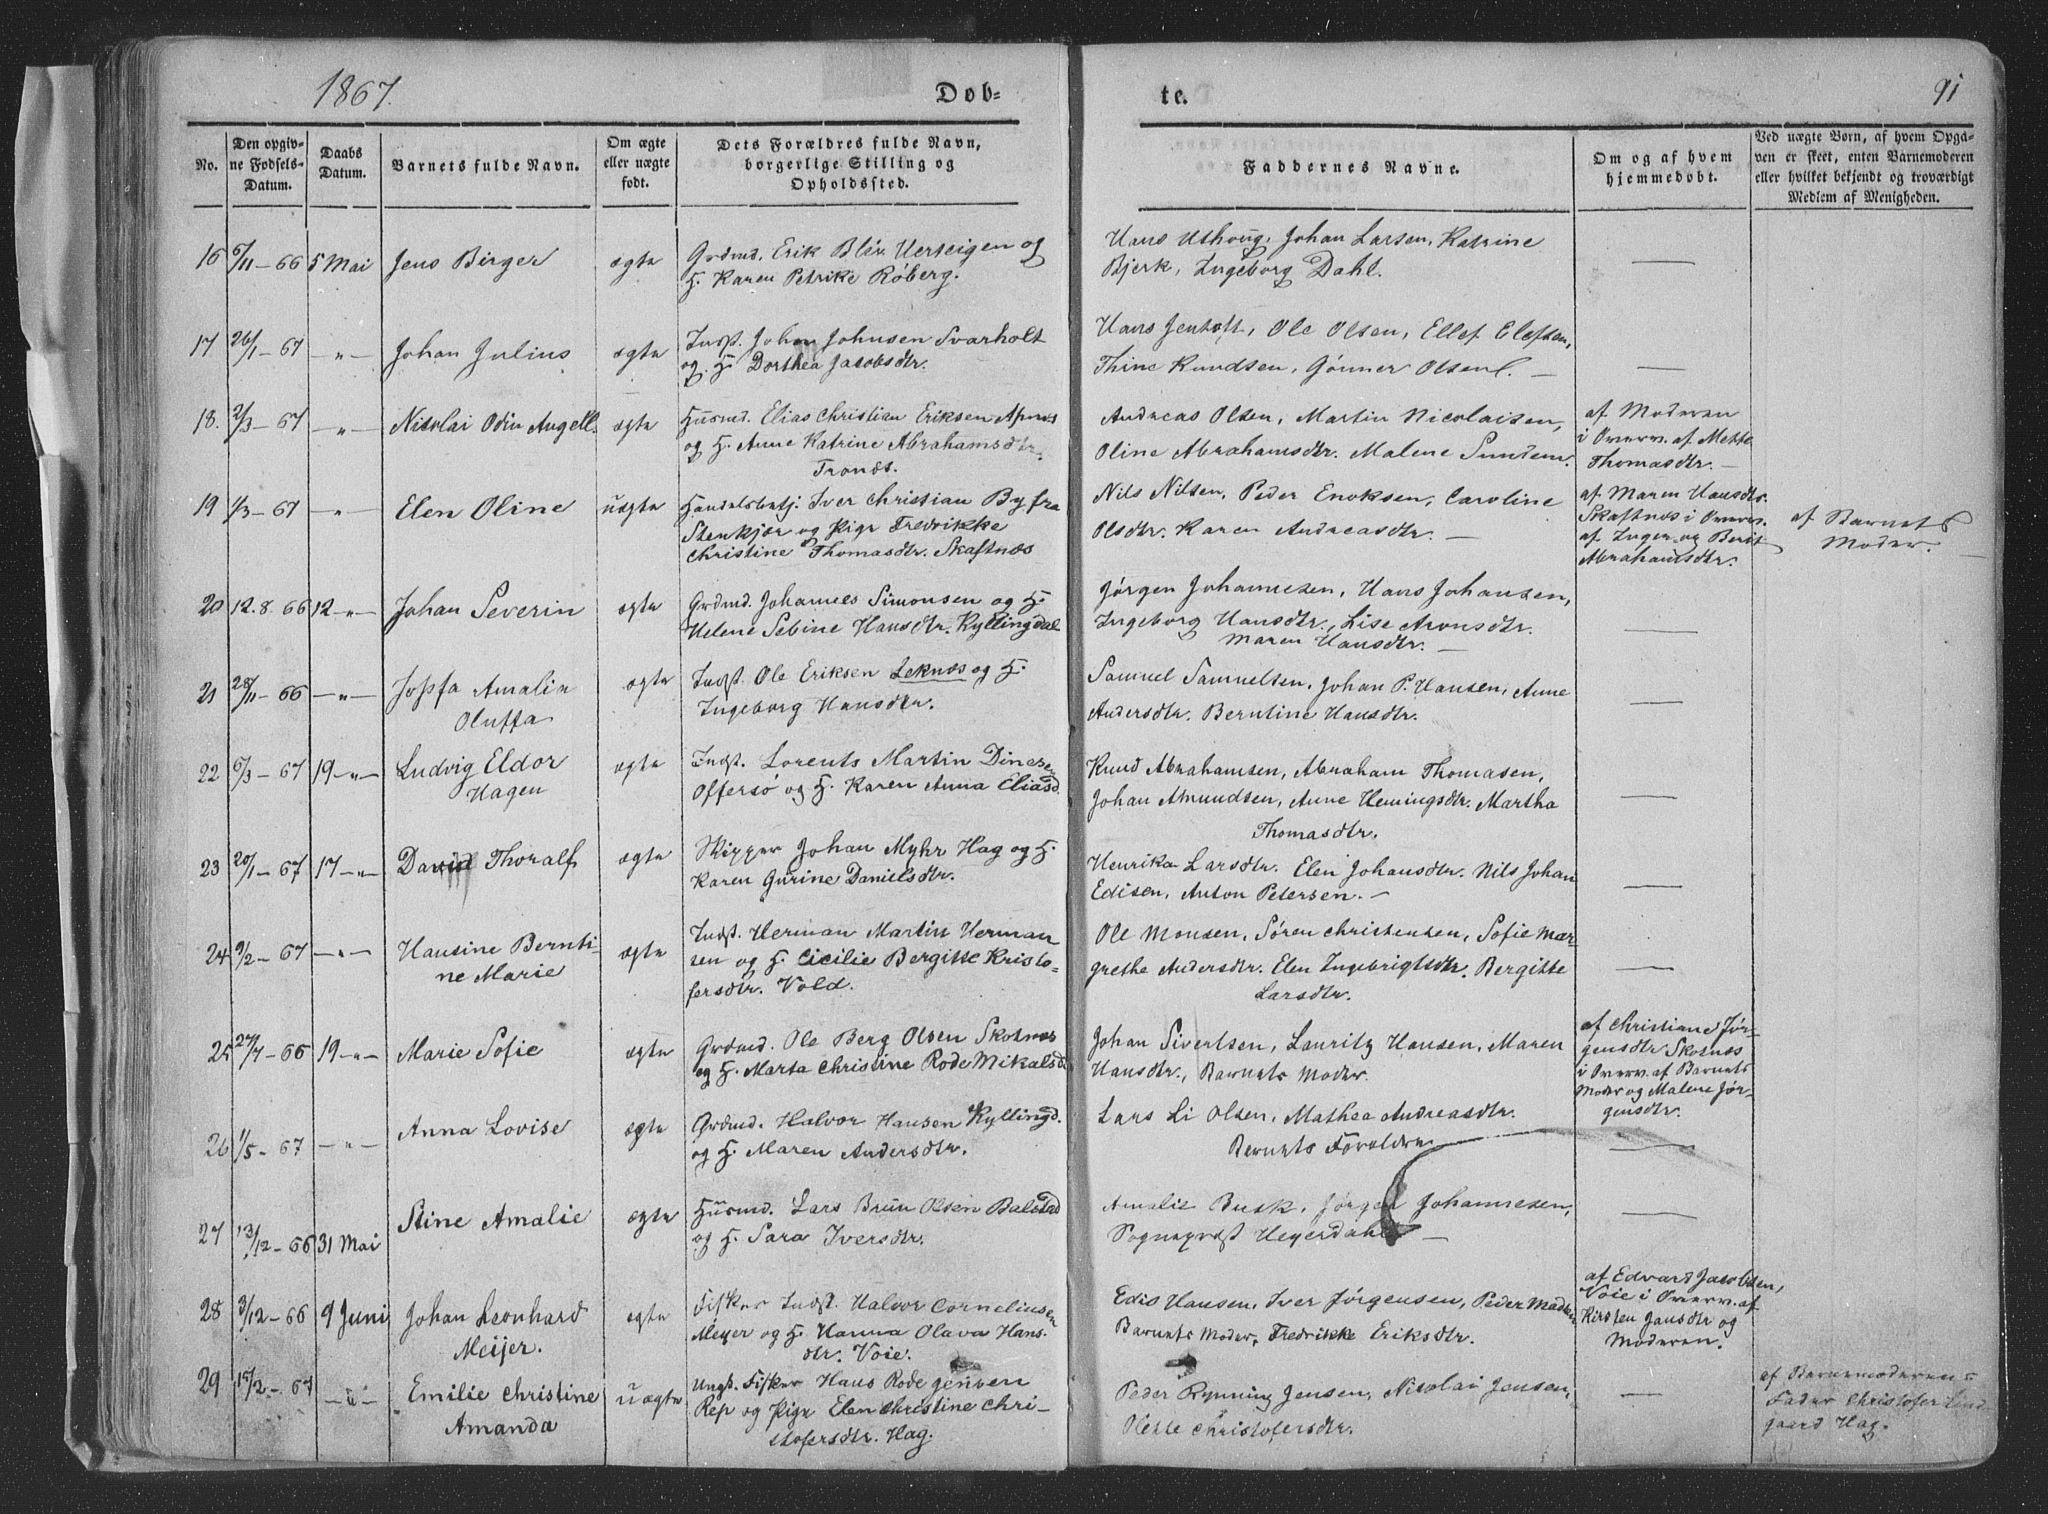 1867.
Døb-
te.
91
No.
Den opgiv-
ne Fødsels-
Datum.
Daabs
Datum.
Barnets fulde Navn.
Om ægte
eller uægte
født.
Dets Forældres fulde Navn,
borgerlige Stilling og
Opholdssted.
Faddernes Navne.
Om og af hvem
hjemmedøbt.
Ved uægte Børn, af hvem Opga-
ven er skeet, enten Barnemoderen
eller hvilket bekjendt og troværdigt
Medlem af Menigheden.
16 6/11-66 5 Mai Jens Birger ægte Grdmd. Erik Blix Uerseigen og
H. Karen Petrike Röberg.
Hans Uthoug, Johan Larsen, Katrine
Bjerk, Ingeborg Dahl. —
17 26/1-67 -"- Johan Julius ægte Indst. Johan Johnsen Svarholt
og H. Dorthea Jacobsdtr.
Hans Jentoft, Ole Olsen, Ellef Elefsen,
Thine Knudsen, Gønner Olsen. —
18. 2/3-67 -"- Nikolai Odin Angell. ægte Husmd. Elias Christian Eriksen Apnes
og H. Anne Katrine Abrahamsdtr.
Tronæs.
Andreas Olsen, Martin Nicolaisen,
Oline Abrahamsdtr. Malene
af Moderen
i Overv. af Mette
Thomasdtr. —
19 1/3-67 -"- Elen Oline uægte Handelsbetj. Iver Christian By fra
Stenkjær og Pige Fredrikke
Christine Thomasdtr. Skaftnæs
Nils Nilsen, Peder Enoksen, Caroline
Olsdtr. Karen Andreasdtr. —
af Maren Hansdtr.
Skaftnæs i Overv.
af Inger og Berit
Abrahamsdtr.
af Barnets
Moder.
20 12.8.66 12-"- Johan Severin ægte Grdmd. Johannes Simonsen og H.
Helene Sebine Hansdtr. Kyllingdal
Jørgen Johannesen, Hans Johansen,
Ingeborg Hansdtr., Lise Aronsdtr.
Maren Hansdtr. —
21 28/11-66 -"- Josefa Amalia
Oluffa
ægte Indst. Ole Eriksen Leknæs og H.
Ingeborg Hansdtr.
Samuel Samuelsen, Johan P. Hansen, Anne
Andersdtr. Berntine Hansdtr.
22 6/3-67 19-"- Ludvig Eldor
Hagen
ægte Indst. Lorents Martin Dinese
Offersø og H. Karen Anna Eliasd
Knud Abrahamsen, Abraham Thomasen,
Johan Amundsen, Anne Hemingsdtr. Martha
Thomasdtr.
23 20/1-67 17-"- David Thoralf ægte Skipper Johan Myhr Hag og H.
Karen Gurine Danielsdtr.
Henrika Larsdtr. Elen Johansdtr. Nils Johan
Edisen, Anton Petersen. —
24 9/2-67 -"- Hansine Bernti-
ne Marie
ægte Indst. Herman Martin Herman
sen og H. Cicilie Bergitte Kristo-
fersdtr. Vold.
Ole Monsen, Søren Christensen, Sofie Mar-
grethe Andersdtr. Elen Ingebrigtsdtr. Bergitte
Larsdtr.
25 27/7-66 19-"- Marie Sofie ægte Grdmd. Ole Berg Olsen Skotnæs
og H. Marta Christine Rode Mikalsd
Johan Sivertsen, Lauritz Hansen, Maren
Hansdtr., Barnets Moder.
af Christiane Jør-
gensdtr Skotnæs
i Overv. af Barnets
Moder og Malene Jør-
gensdtr.
26 1/5-67 -"- Anna Lovise ægte Grdmd. Halvor Hansen Kyllingd.
og H. Maren Andersdtr.
Lars Li Olsen, Mathea Andreasdtr.
Barnets Forældre
27 13/12-66 31 Mai Stine Amalie ægte Husmd. Lars Brun Olsen Balstad
og H. Sara Iversdtr.
Amalie Busk, Jørgen Johannesen,
Sogneprest Heyerdahl —
28 3/12-66 9 Juni Johan Leonhard
Meijer.
ægte Fisker Indst. Halvor Corneliusen
Meyer og H. Hanna Olava Hans-
dtr. Voie.
Edis Hansen, Iver Jørgensen, Peder Madsen
Barnets Moder, Fredrikke Eriksdtr.
af Edvard Jacobsen,
Voie i Overv. af
Kirsten Jansdtr og
Moderen.
29 15/2-67 -"- Emilie Christine
Amanda
uægte Ungk. Fisker Hans Rode Jensen
Rep og Pige Elen Christine Chri-
stofersdtr. Hag.
Peder Rynning Jensen, Nicolai Jensen,
Christofersdtr.
af Barnemoderens
Fader Christofer Lind-
gaard Hag.